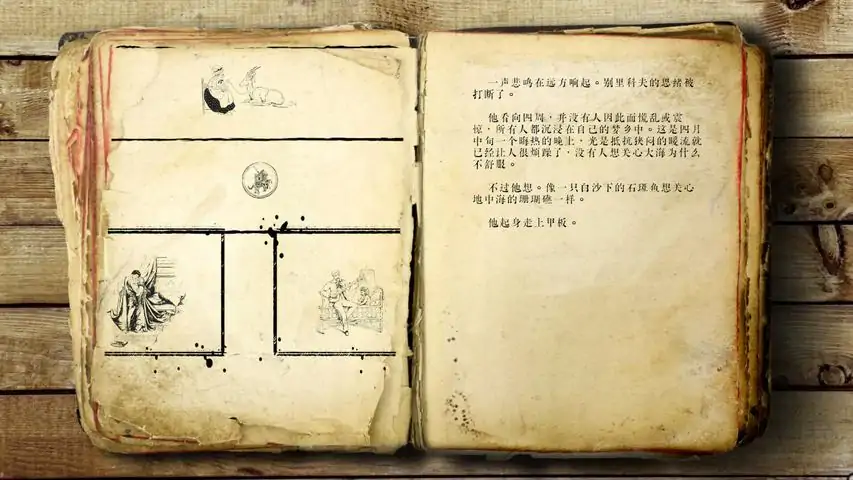 一声悲鸣在远方响起。别里科夫的思绪被
打断了。
他看向四周，并没有人因此而慌乱或震
惊，所有人都沉浸在自己的梦乡中。这是四月
中旬一个晦热的晚上，光是抵抗狭闷的暖流就
已经让人很烦躁了，没有人想关心大海为什么
不舒服。
不过他想。像一只白沙下的石斑鱼想关心
地中海的珊瑚礁一样。
他起身走上甲板。